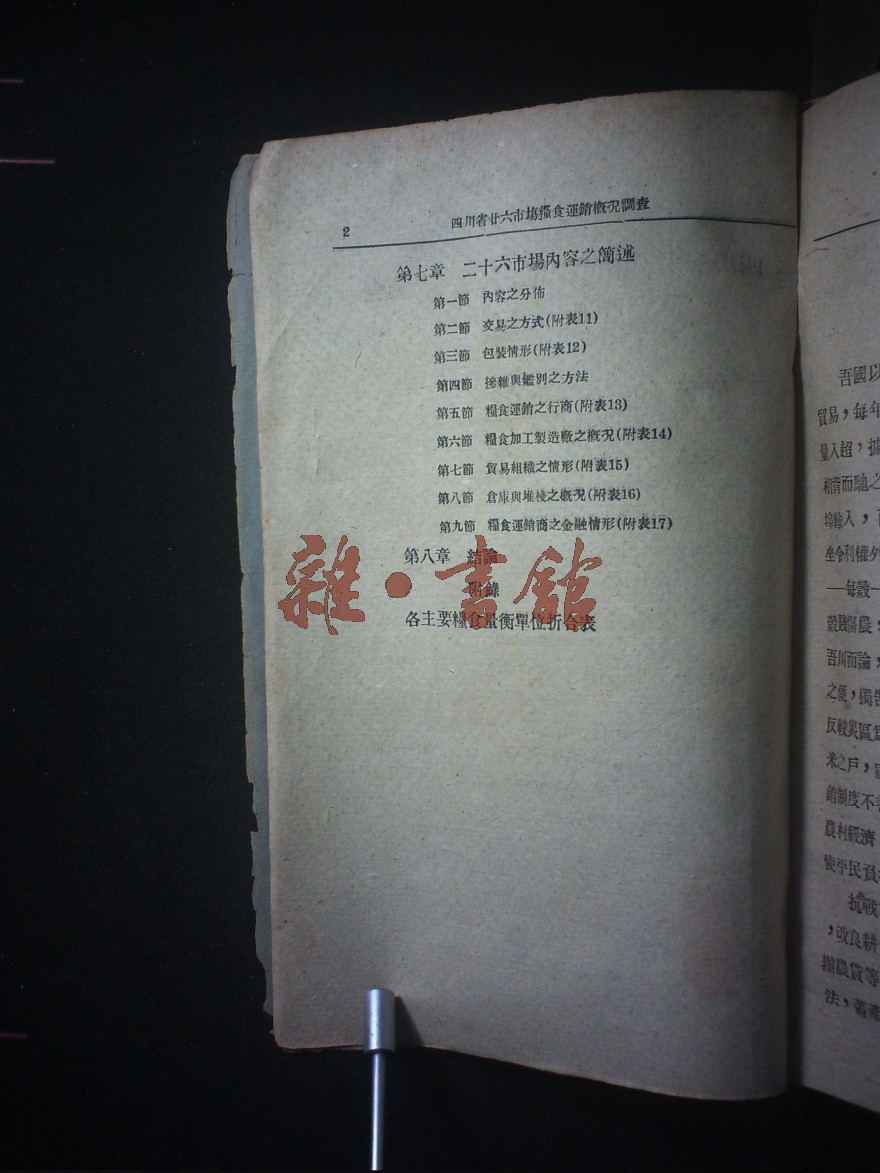 2 四川省廿六市場糧食運銷概況調查
第七章 二十六市場內容之簡述
第一節 內容之分佈
第二節 交易之方式(附表11)
第三節 包裝情形(附表12)
第四節 摻雜與鑑別之方法
第五節 糧食運銷之行商(附表13)
第六節 糧食加工製造廠之概況(附表14)
第七節 貿易組織之情形(附表15)
第八節 倉庫與堆棧之概況(附表16)
第九節 糧食運銷商之金融情形(附表17)
第八章 結論
附錄
各主要糧食量衡單位折合表
雜·書館
吾國以
貿易，每年
量入超，據
相背而馳之
埠輸入，
坐令利權外
—每穀一
穀賤傷農，
吾川而論，
之便，獨
反較災區
米之戶，
銷制度不
農村經濟
使平民負
抗戰
，改良耕
辦農貸等
法，